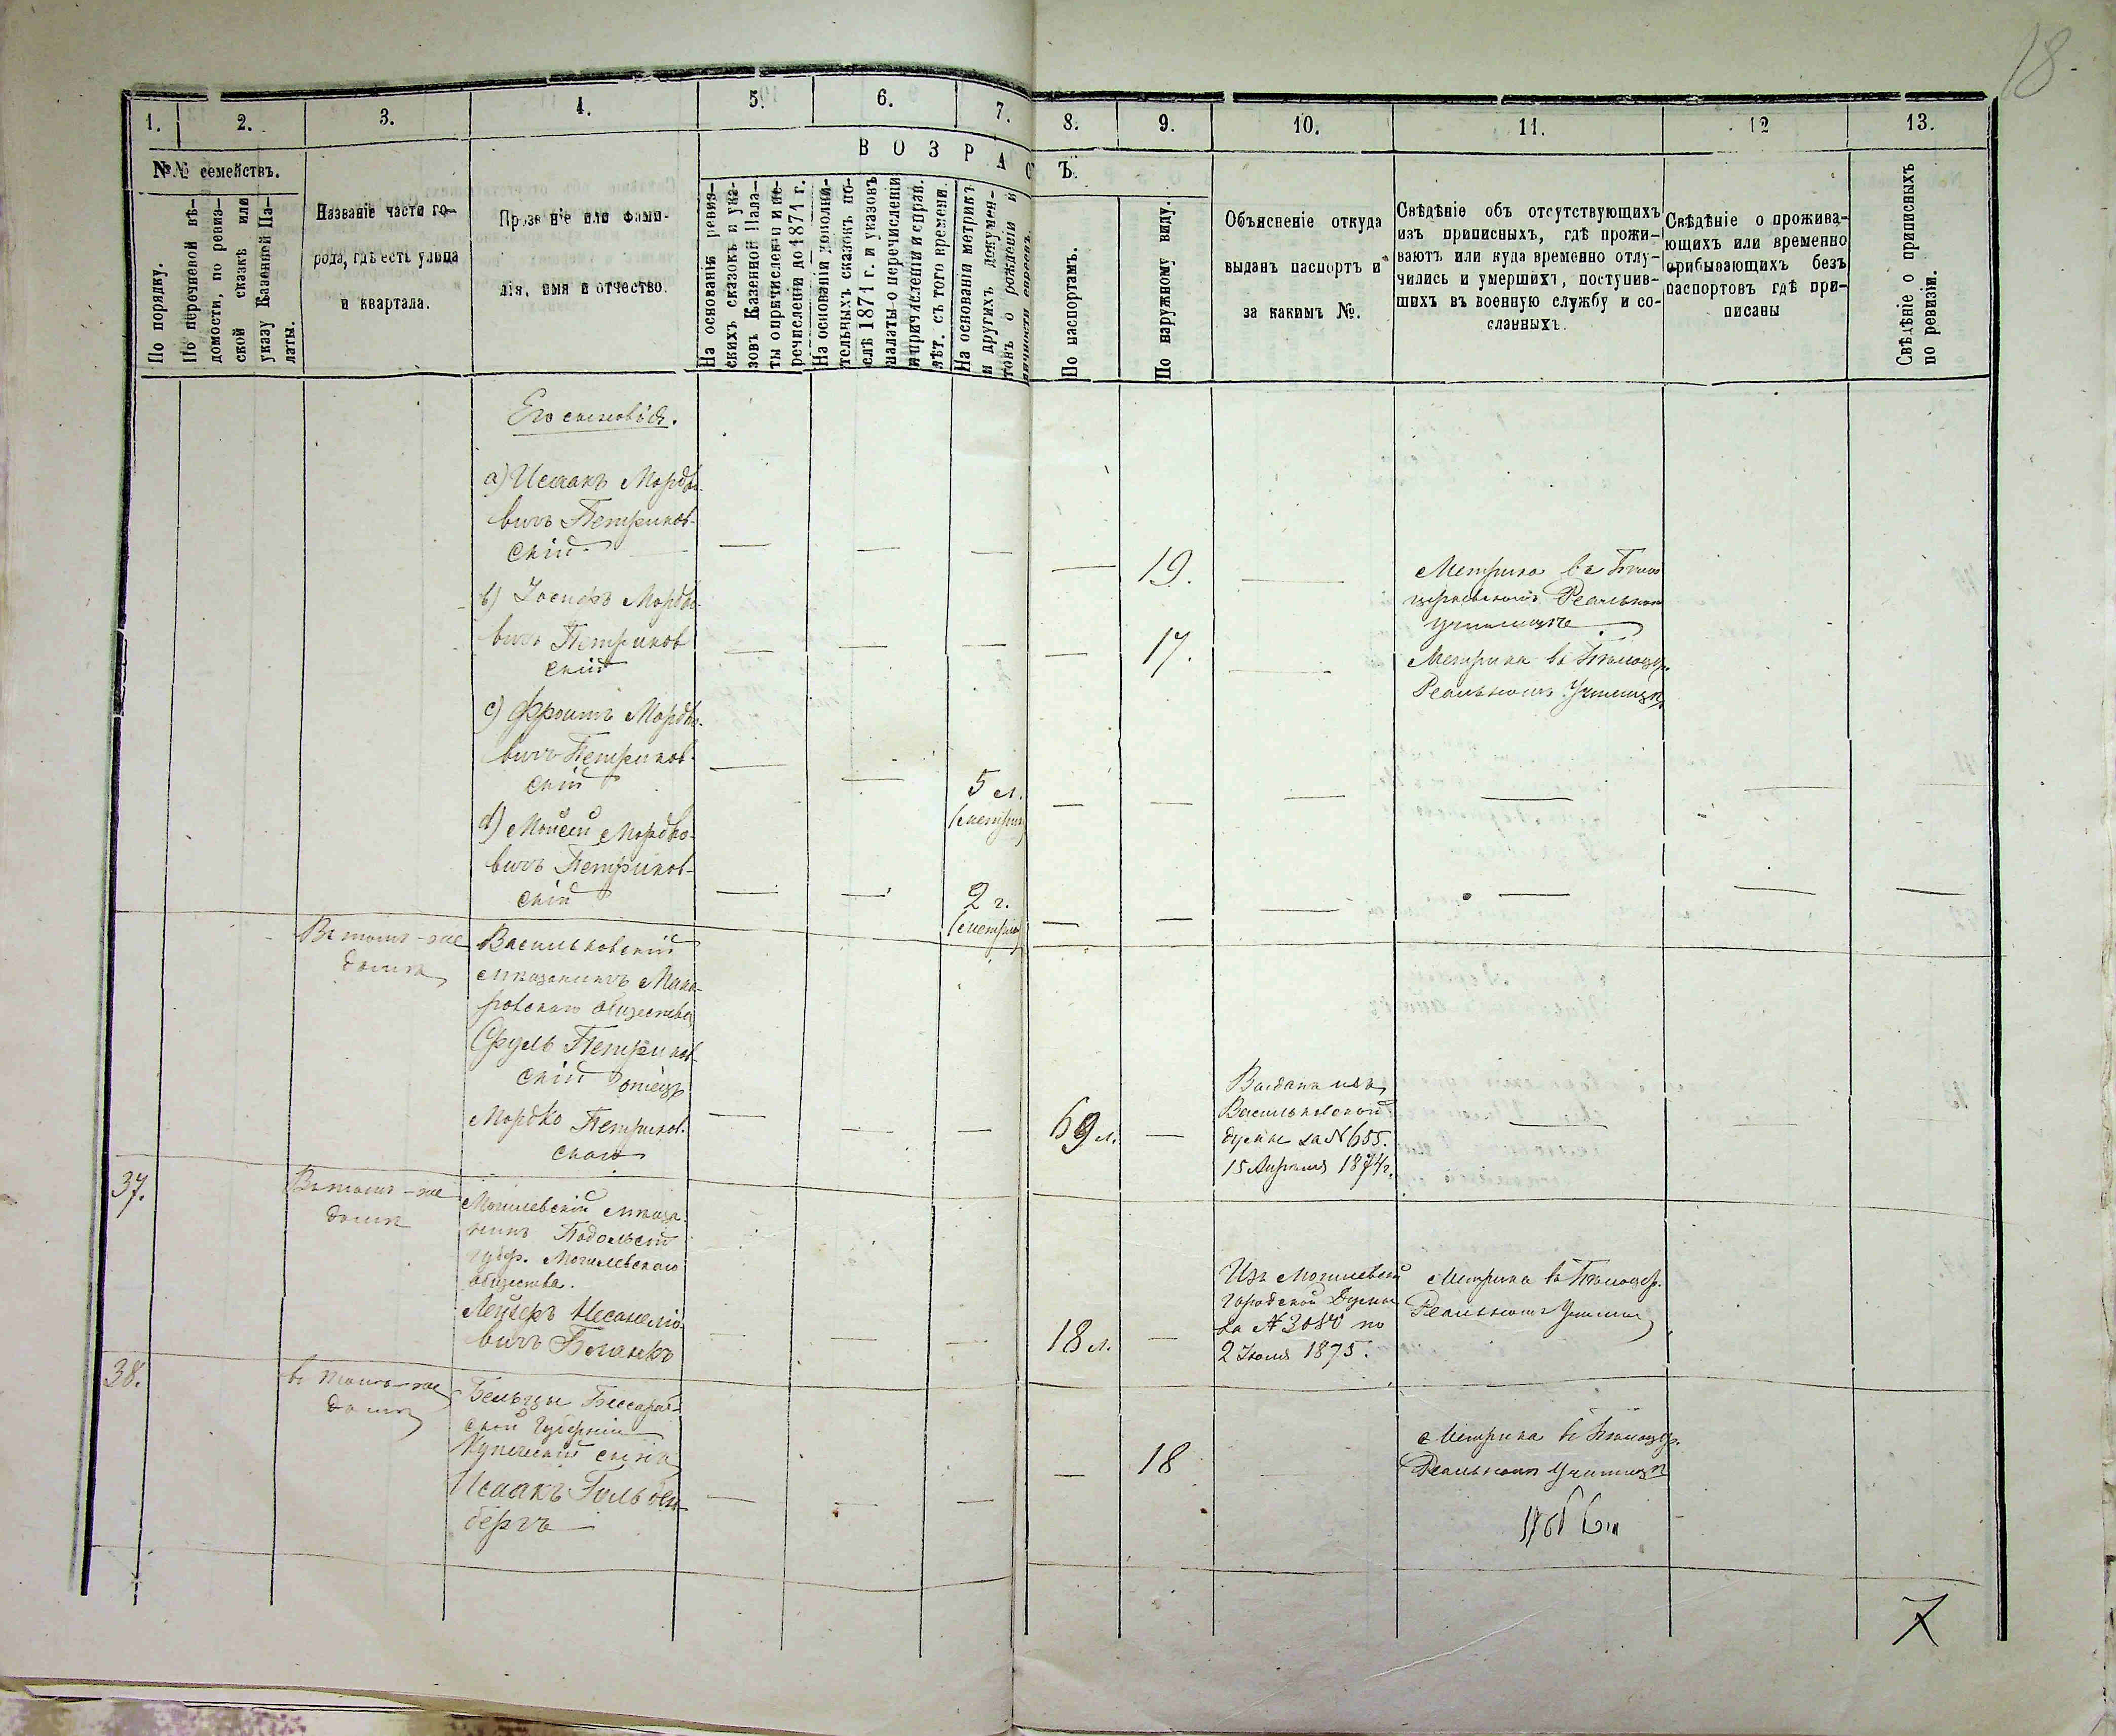 18.
1. 2. 3. 4. 5. 6. 7. 8. 9. 10. 11. 12 13.
№№ семействъ.
По порядку.
По перечневой вѣ-
домости, по ревиз-
ской сказкѣ или
указу Казенной Па-
латы.
Названіе части го-
рода, гдѣ есть улица
и квартала.
Прозваніе или фами-
лія, имя и отчество.
ВОЗРАСТЪ.
На основаніи ревиз-
скихъ сказокъ и ука-
зовъ Казенной Пала-
ты о причисленіи и пе-
речисленіи до 1871 г.
На основаніи дополни-
тельныхъ сказокъ по-
слѣ 1871 г. и указовъ
палаты о перечисленіи
и причисленіи и прав.
лѣт. съ того времени.
На основаніи метрикъ
и другихъ докумен-
товъ о рожденіи и
По паспортамъ.
По наружному виду.
Объясненіе откуда
выданъ паспортъ и
за какимъ №.
Свѣдѣніе объ отсутствующихъ
изъ приписныхъ, гдѣ прожи-
ваютъ или куда временно отлу-
чились и умершихъ, поступив-
шихъ въ военную службу и со-
сланныхъ.
Свѣдѣніе о прожива-
ющихъ или временно
прибывающихъ безъ
паспортовъ гдѣ при-
писаны
Свѣдѣніе о приписныхъ
по ревизіи.
Его сыновья.
а) Исаакъ Мордко-
вичъ Петриков-
скій — — — — 19. —
Метрика въ Бело
церковскомъ Реальном
училищѣ
b) Іосифъ Мордко-
вичъ Петриков
скій — — — — 17. —
Метрика въ Бѣлоцер.
Реальномъ Училищѣ
с) Фроимъ Мордко-
вичъ Петриков-
скій — — 5 л. — — — — — —
(метрик
d) Мойсей Мордко-
вичъ Петриков-
скій — — 2 г. — — — — — —
(метрик
Въ томъ-же
домѣ
Васильковскій
мѣщанинъ Мака-
ровскаго общества
Сруль Петриков-
скій отецъ
Мордко Петриков-
скаго — — — 69 л. — —
Выданъ изъ
Васильковской
думы за № 655.
15 Апрѣля 1874 г.
37.
Въ томъ-же
домѣ
Могилевскій мѣща-
нинъ Подольской
губер. Могилевскаго
общества.
Лейзеръ
вичъ Бланкъ — — — 18 л. —
Изъ Могилевской
Городской Думы
за № 3080 по
2 Іюля 1875.
Метрика въ Бѣлоцер.
Реальномъ Училищ
38.
въ томъ-же
домѣ
Бельцы Бессараб-
ской Губерніи
Купеческій сынъ
Исаакъ Гольден-
бергъ — — — — 18
Метрика въ Бѣлоцер.
Реальномъ Училищѣ
7